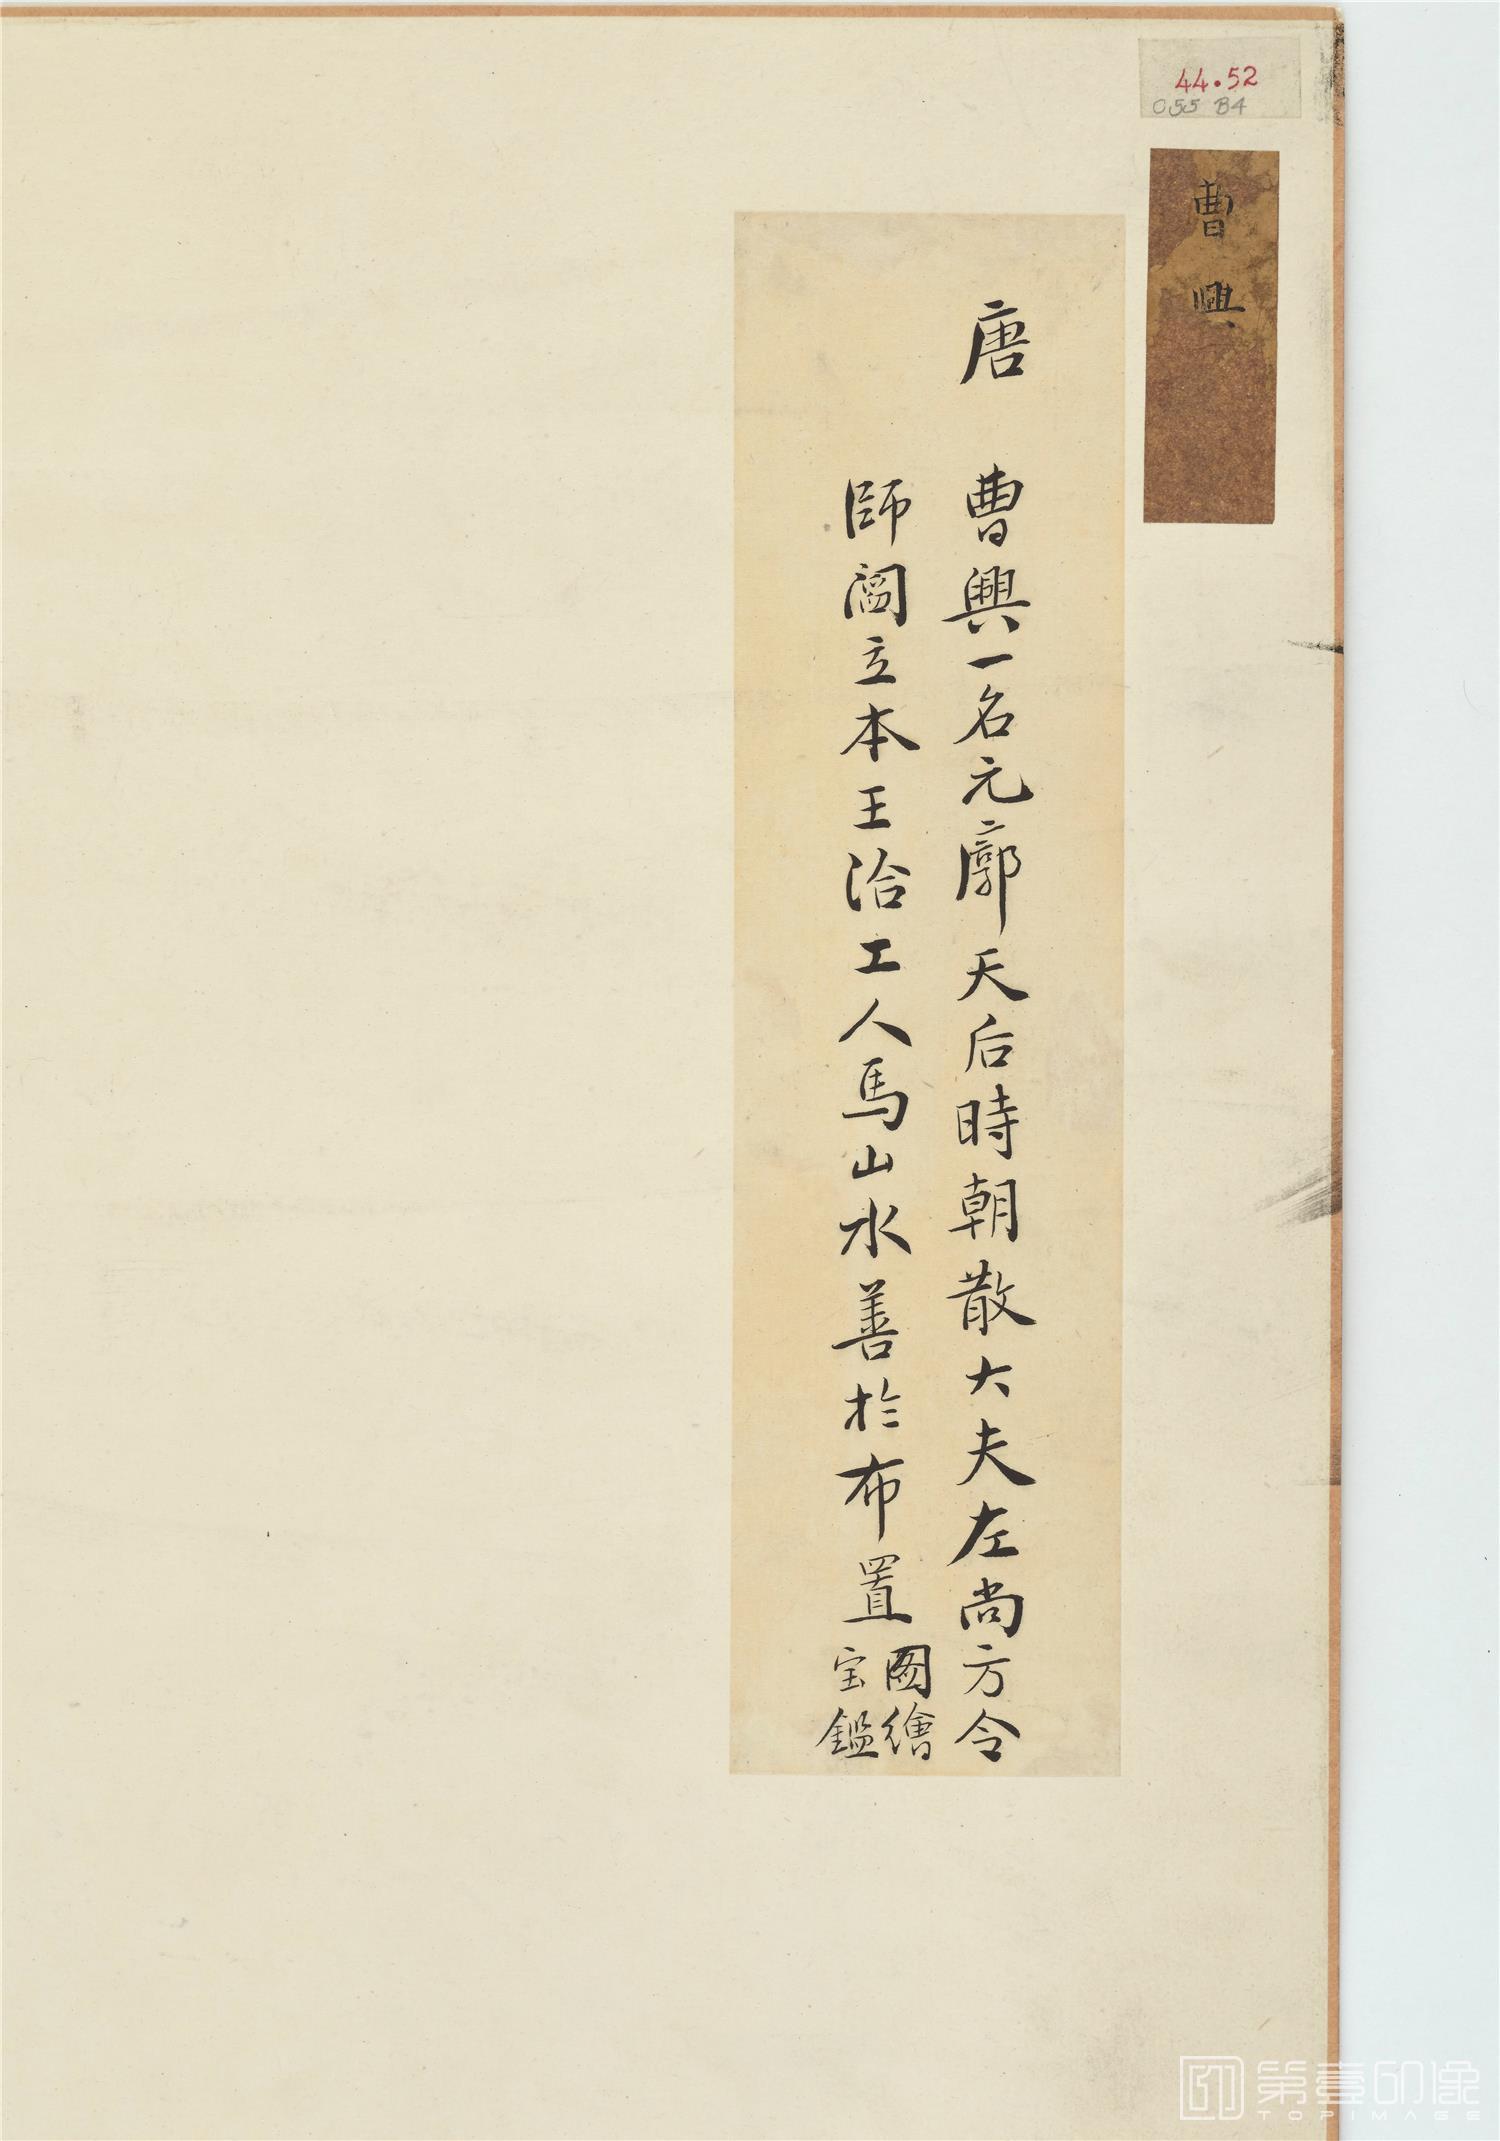 44.52
055 B4
曹興
唐
曹興一名元廓天后時朝散大夫左尚方令
師閻立本王洽工人馬山水善於布置
圖繪
宝鑑
第壹印像
TOPIMAGE